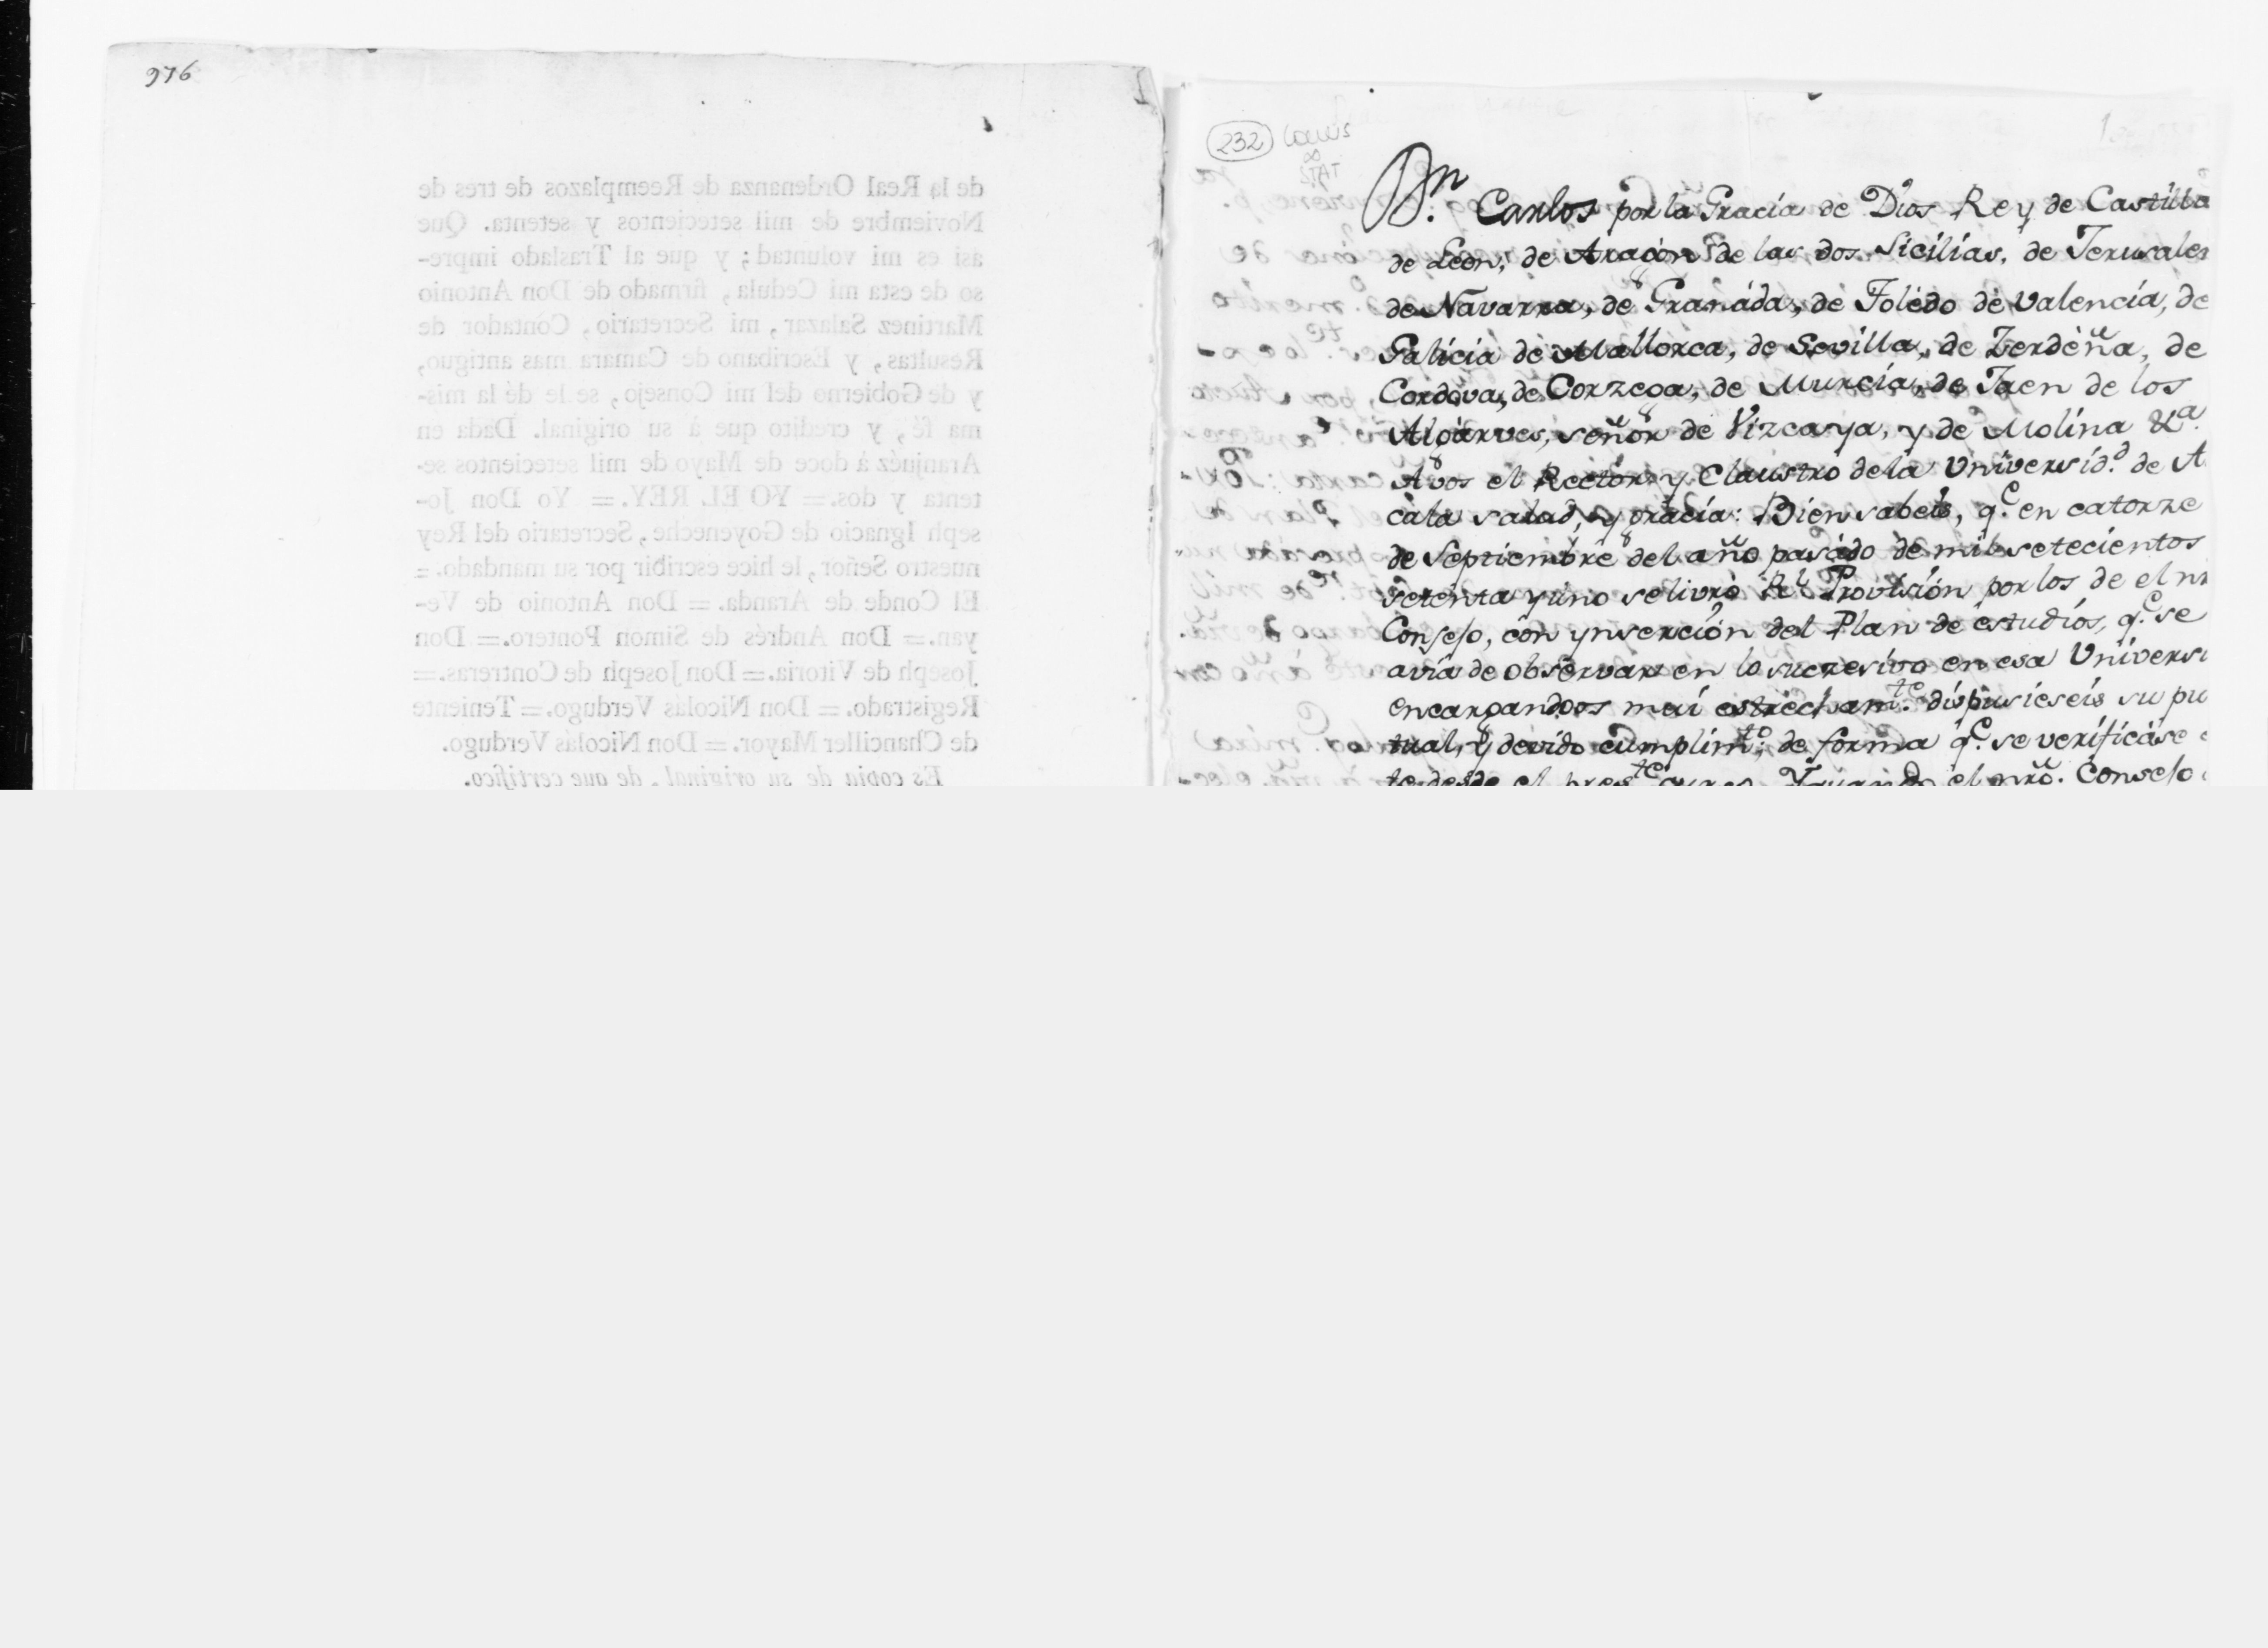 976
de la Real Ordenanza de Reemplazos de tres de
Noviembre de mil setecientos y setenta. Que
asi es mi voluntad; y que al Traslado impre-
so de esta mi Cedula, firmado de Don Antonio
Martinez Salazar, mi Secretario, Contador de
Resultas, y Escribano de Camara mas antiguo,
y de Gobierno del mi Consejo, se le dé la mis-
ma fé, y credito que à su original. Dada en
Aranjuéz à doce de Mayo de mil setecientos se-
tenta y dos.= YO EL REY.= Yo Don Jo-
seph Ignacio de Goyeneche, Secretario del Rey
nuestro Señor, le hice escribir por su mandado.=
El Conde de Aranda.= Don Antonio de Ve-
yan.= Don Andrés de Simon Pontero.= Don
Joseph de Vitoria.= Don Joseph de Contreras.=
Registrado.= Don Nicolás Verdugo.= Teniente
de Chanciller Mayor.= Don Nicolás Verdugo.
Es copia de su original, de que certifico.
232
STAT
Dn. Carlos por la Gracia de Dios Rey de Castilla
de Leon, de Aragon de las dos Sicilias, de Jerusalen
de Navarra, de Granada, de Toledo de Valencia, de
Galicia de Mallorca, de Sevilla, de Zerdeña, de
Cordova, de Corzega, de Murcia, de Jaen de los
Algarves, señor de Vizcaya, y de Molina &a.
A vos el Rector y Claustro de la Universid.d de A
cala salud, y gracia: Bien sabeis, q.e en catorze
de Septiembre del año pasado de mil setecientos
setenta y uno se livró Rl Provision por los de el nr
Consejo, con ynsercion del Plan de estudios, q.e se
avia de observar en lo sucresivo en esa Universi
encargandoos mui estrecham.te dispusieseis su pu
tual, y devido cumplim.to; de forma q.e se verificáse
te desde el pres.te curso. Y el nro. Consejo